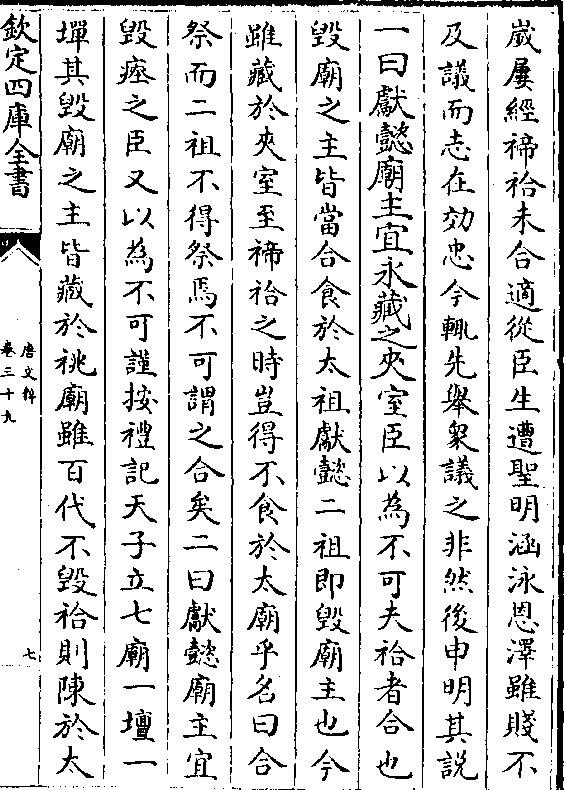 嵗屢經禘祫未合適從臣生遭聖明涵泳恩澤雖賤不
及議而志在効忠今輒先舉衆議之非然後申明其説
一曰獻懿廟主宜永藏之夾室臣以為不可夫祫者合也
毀廟之主皆當合食於太祖獻懿二祖即毀廟主也今
雖藏於夾室至禘祫之時豈得不食於太廟乎名曰合
祭而二祖不得祭焉不可謂之合矣二曰獻懿廟主宜
毀瘞之臣又以為不可謹按禮記天子立七廟一壇一
墠其毀廟之主皆藏於祧廟雖百代不毀祫則陳於太
欽定四庫全書
唐文粹
卷三十九
七